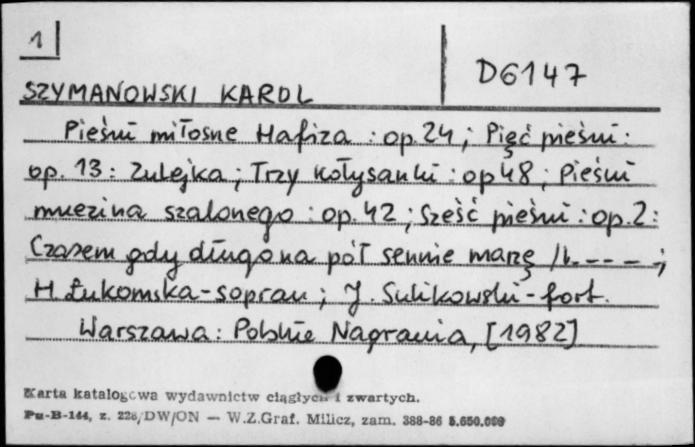 1
D6147
SZYMANOWSKI KAROL
Pieśni miłosne Hafiza : op. 24 ; Pięć pieśni :
op. 13 : Zulejka ; Trzy kołysanki : op 48 ; Pieśni
muezina szalonego : op. 42 ; Sześć pieśni : op. 2 :
Czasem gdy długo na pół sennie marzę /i. - - - - ;
H. Łukomska - sopran ; J. Sulikowski - fort.
Warszawa : Polskie Nagrania, [1982]
Karta katalogowa wydawnictw ciągłych i zwartych.
Pu-B-144, z. 228/DW/ON — W.Z.Graf. Milicz, zam. 388-86 5.650.000